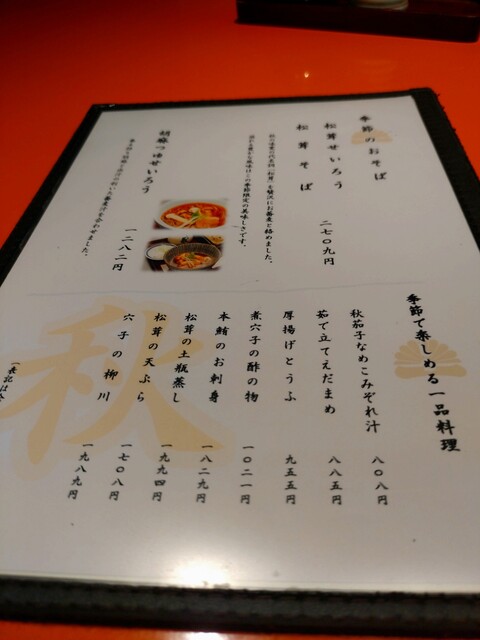 季節のおそば
松茸せいろう
松茸そば
二七〇九円
胡麻つゆせいろう
一二八二円
季節で楽しめる一品料理
秋茄子なめこみぞれ汁
八〇八円
茹で立てえだまめ
八八五円
厚揚げとうふ
九五五円
煮穴子の酢の物
一〇二一円
本鮪のお刺身
一八二九円
松茸の土瓶蒸し
一九九四円
松茸の天ぷら
一七〇八円
穴子の柳川
一九八九円
秋